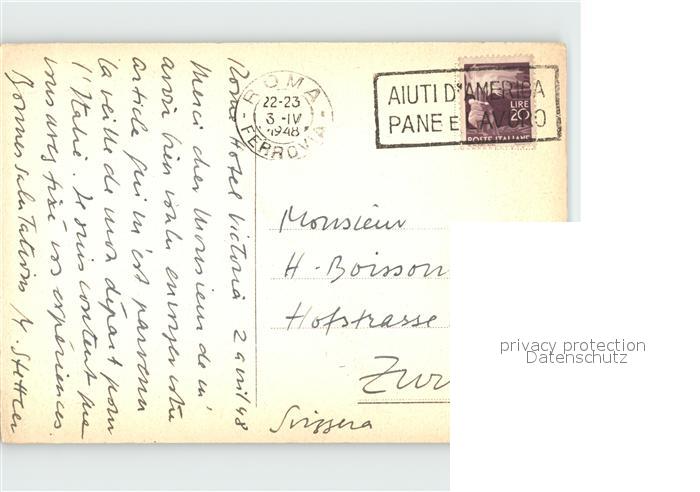 Rome Hotel Victoria 2 avril 48
Merci cher Monsieur de m'
avoir bien voulu envoyer votre
article qui m'est parvenu
la veille de mon départ pour
l'Italie. Je suis content que
vous avez fixé vos expériences.
Bonnes salutations
ROMA
22-23
3-IV
1948
FERROVIA
AIUTI D'AMERICA
PANE E LAVORO
LIRE
20
POSTE ITALIANE
Monsieur
H. Boisson
Hofstrasse
Zur
Svizzera
privacy protection
Datenschutz